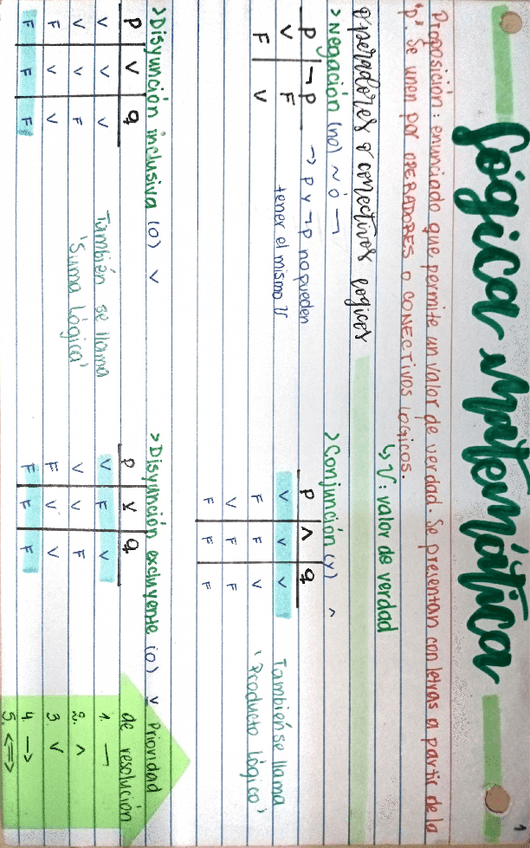 1
Lógica Matemática
Proposición: enunciado que permite un valor de verdad. Se presentan con letras a partir de la
"p". Se unen por OPERADORES O CONECTIVOS LÓGICOS.
↳ V: valor de verdad
Operadores o conectivos logicos
>Negación (no) ~ ó ¬
p ¬p
V F
F V
→ p y ¬p no pueden
tener el mismo V
>Conjunción (y) ^
p ^ q
V V V
F F V
V F F
F F F
También se llama
'Producto lógico'
>Disyunción inclusiva (o) v
p V q
V V V
V V F
F V V
F F F
También se llama
'Suma Lógica'
>Disyunción excluyente (o) v̲
p v̲ q
V F V
V V F
F V V
F F F
Prioridad
de resolución
1. ¬
2. ^
3. V
4. →
5. <=>